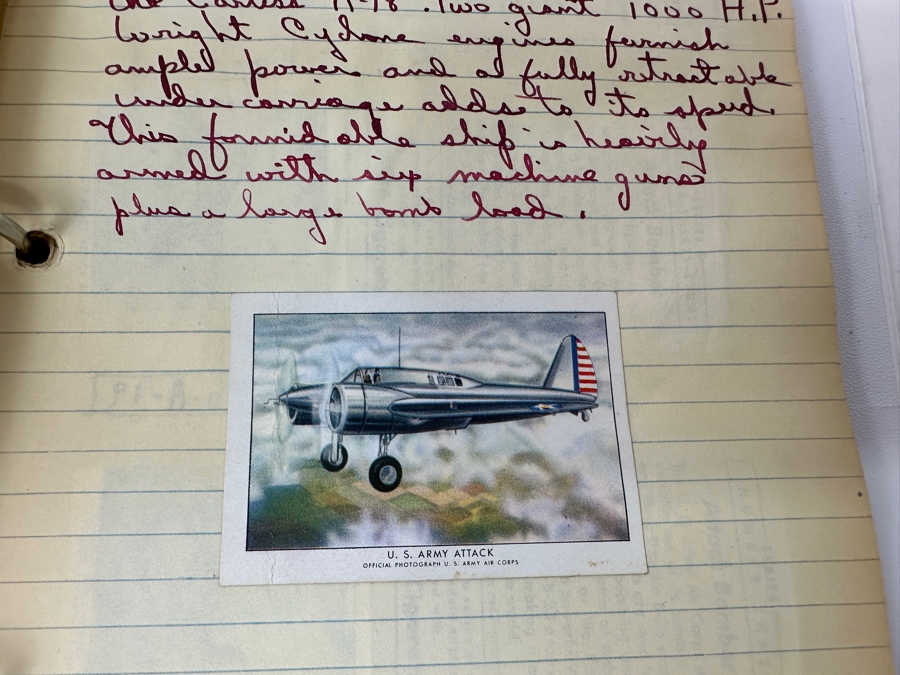 the Curtiss A-18. Two giant 1000 H.P.
Wright Cyclone engines furnish
ample power and a fully retractable
under carriage adds to its speed.
This formidable ship is heavily
armed with six machine guns
plus a large bomb load.
U. S. ARMY ATTACK
OFFICIAL PHOTOGRAPH U. S. ARMY AIR CORPS